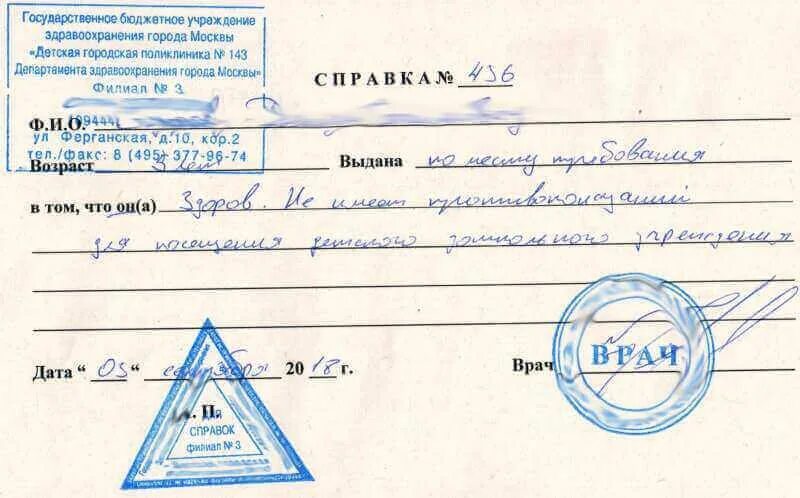 Государственное бюджетное учреждение
здравоохранения города Москвы
«Детская городская поликлиника № 143
Департамента здравоохранения города Москвы»
Филиал № 3
СПРАВКА № 436
Ф.И.О.
109444
ул Ферганская, д.10, кор.2
тел./факс: 8 (495) 377-96-74
Возраст 3 лет Выдана по месту требования
в том, что он(а) Здоров. Не имеет противопоказаний
для посещения детского дошкольного учреждения
Дата “ 03 “ сентября 2018 г.
Врач
ВРАЧ
М. П.
ДЛЯ
СПРАВОК
филиал № 3